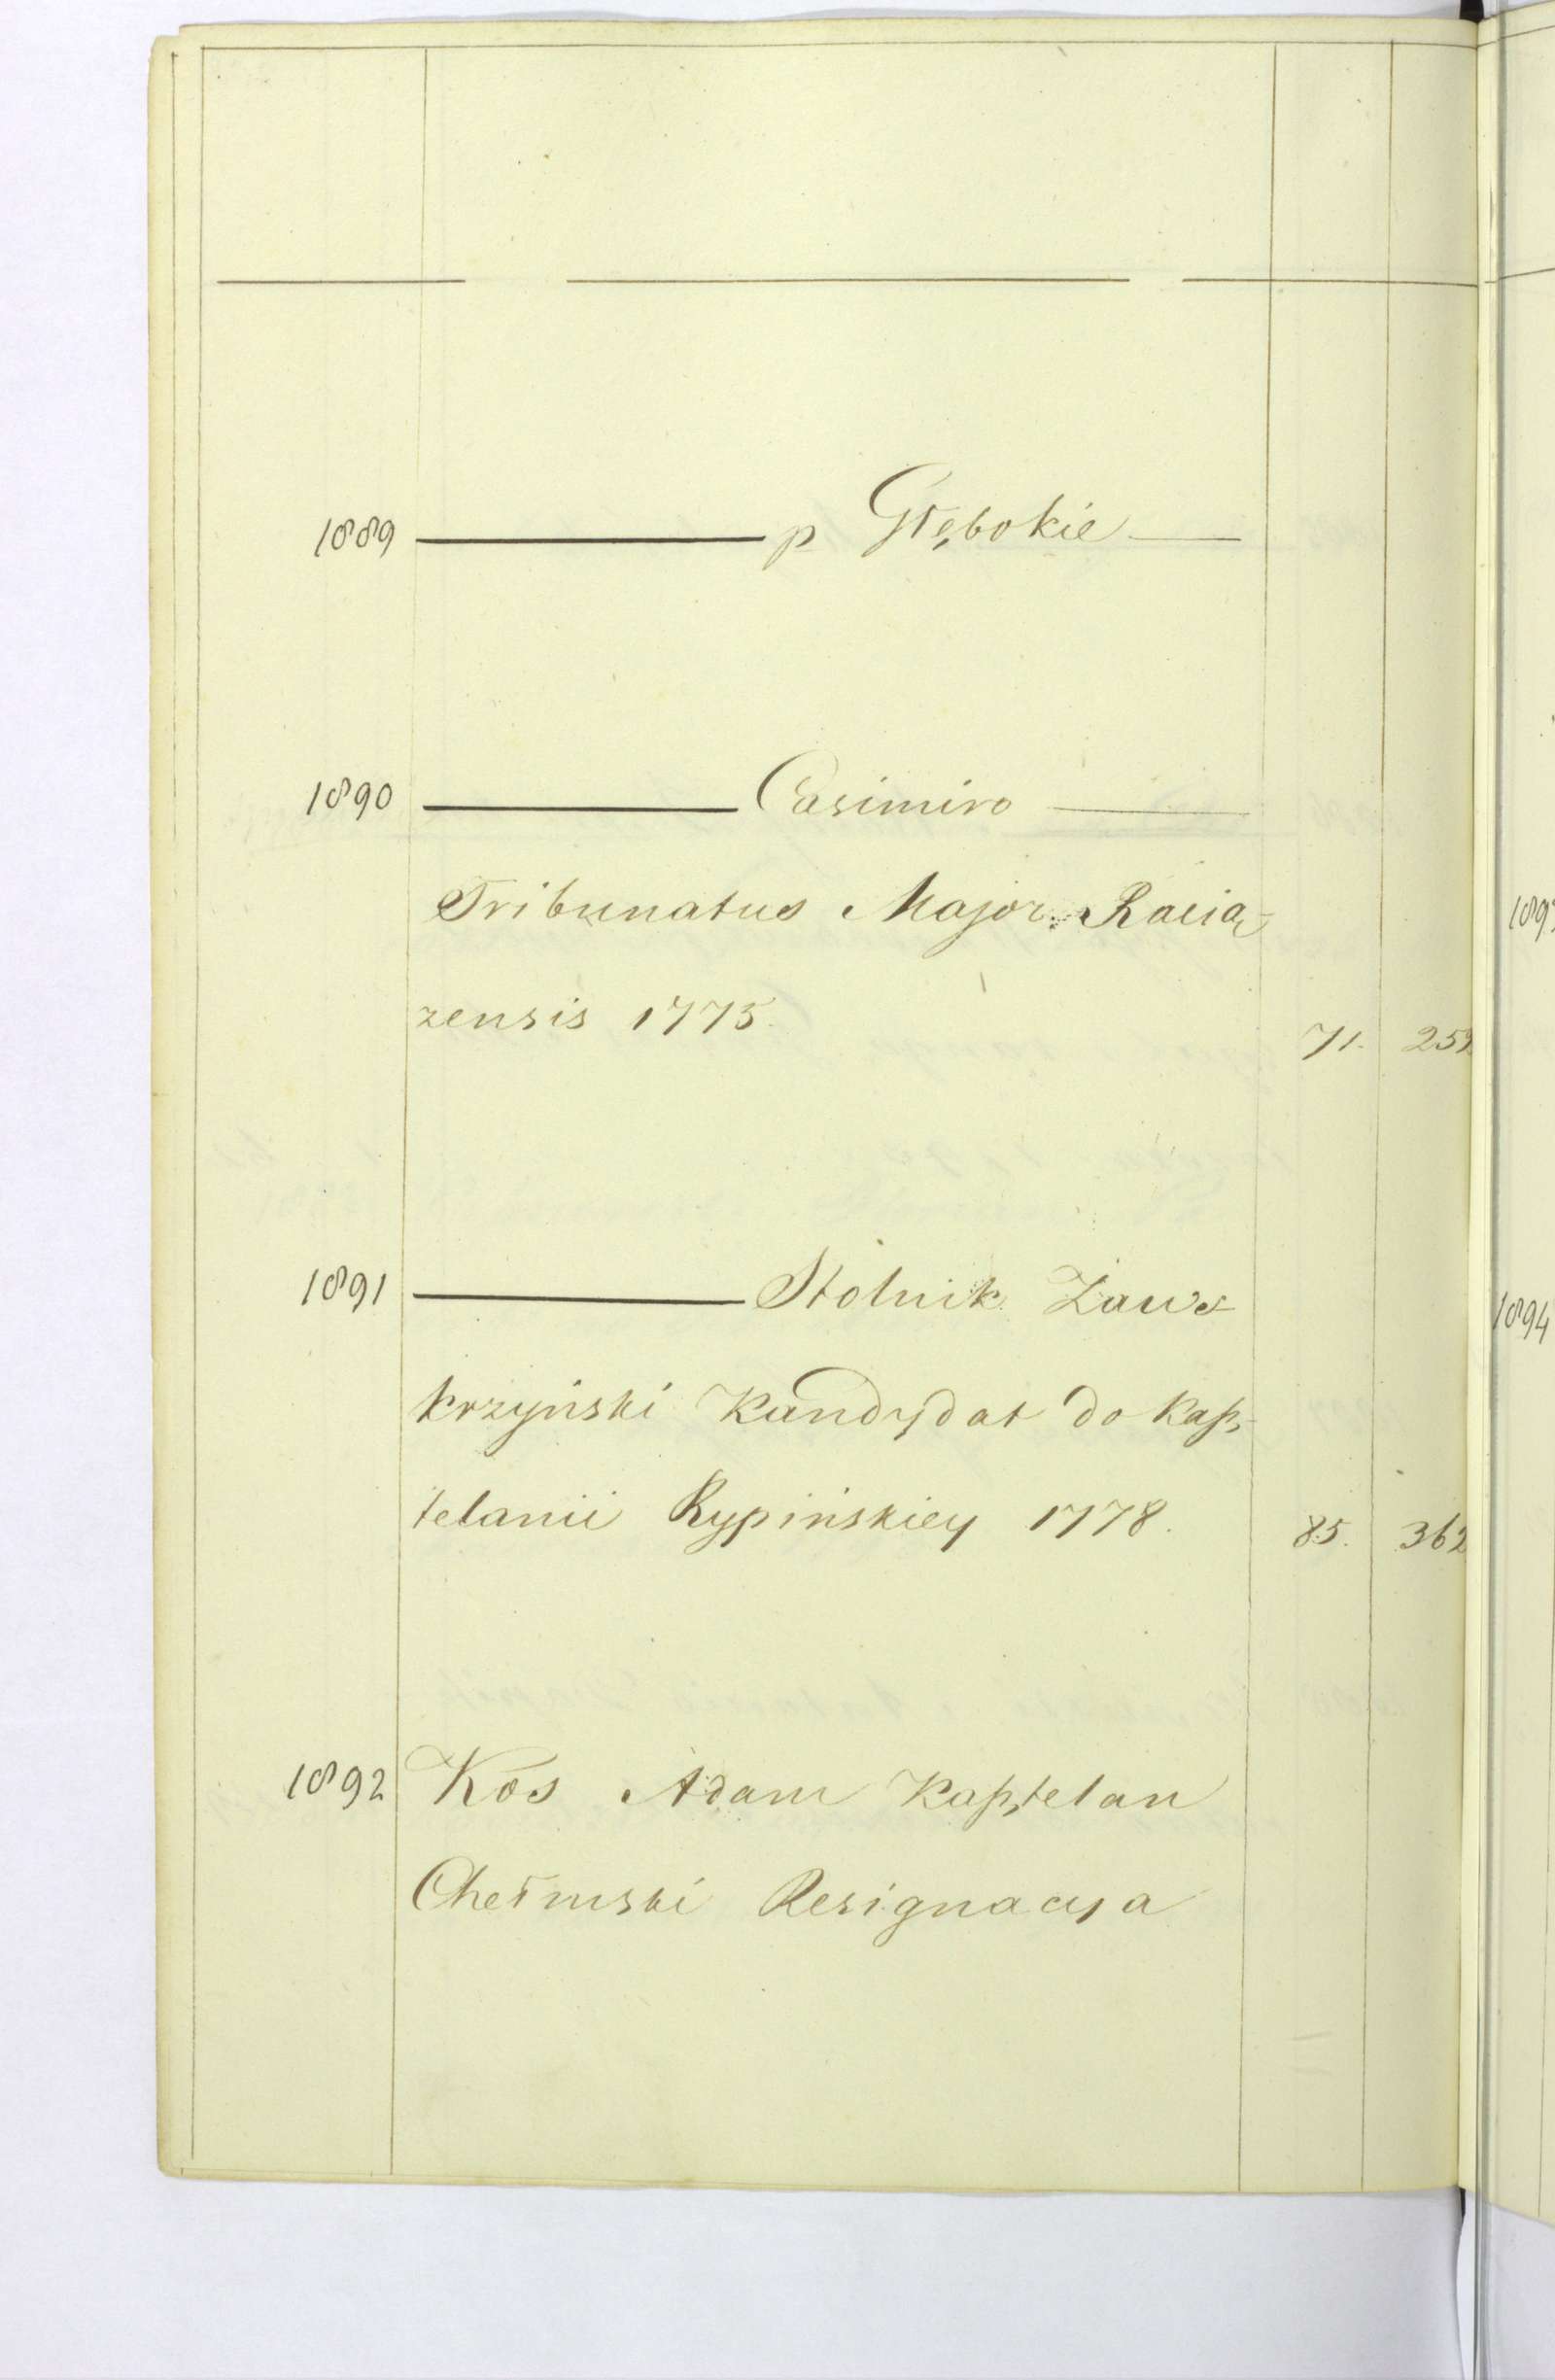 1889 p Głębokie
1890 Casimiro
Tribunatus Major. Racią-
zensis 1775. 71. 252
1891 Stolnik Zaws-
krzyński Kandydat do Kasz-
telanii Rypińskiey 1778. 85. 362
1892 Kos Adam Kasztelan
Chełmski Resignacya
1894